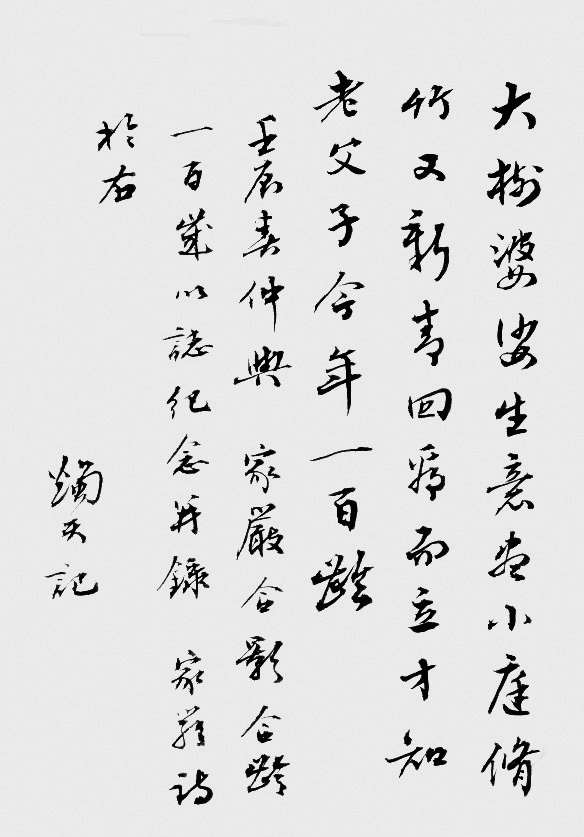 大樹婆娑生意盡小庭脩
竹又新青回而立才知
老父子今年一百齡
壬辰春仲與 家嚴合影合齡
一百歲以誌紀念并錄 家詩
於右
燭天記